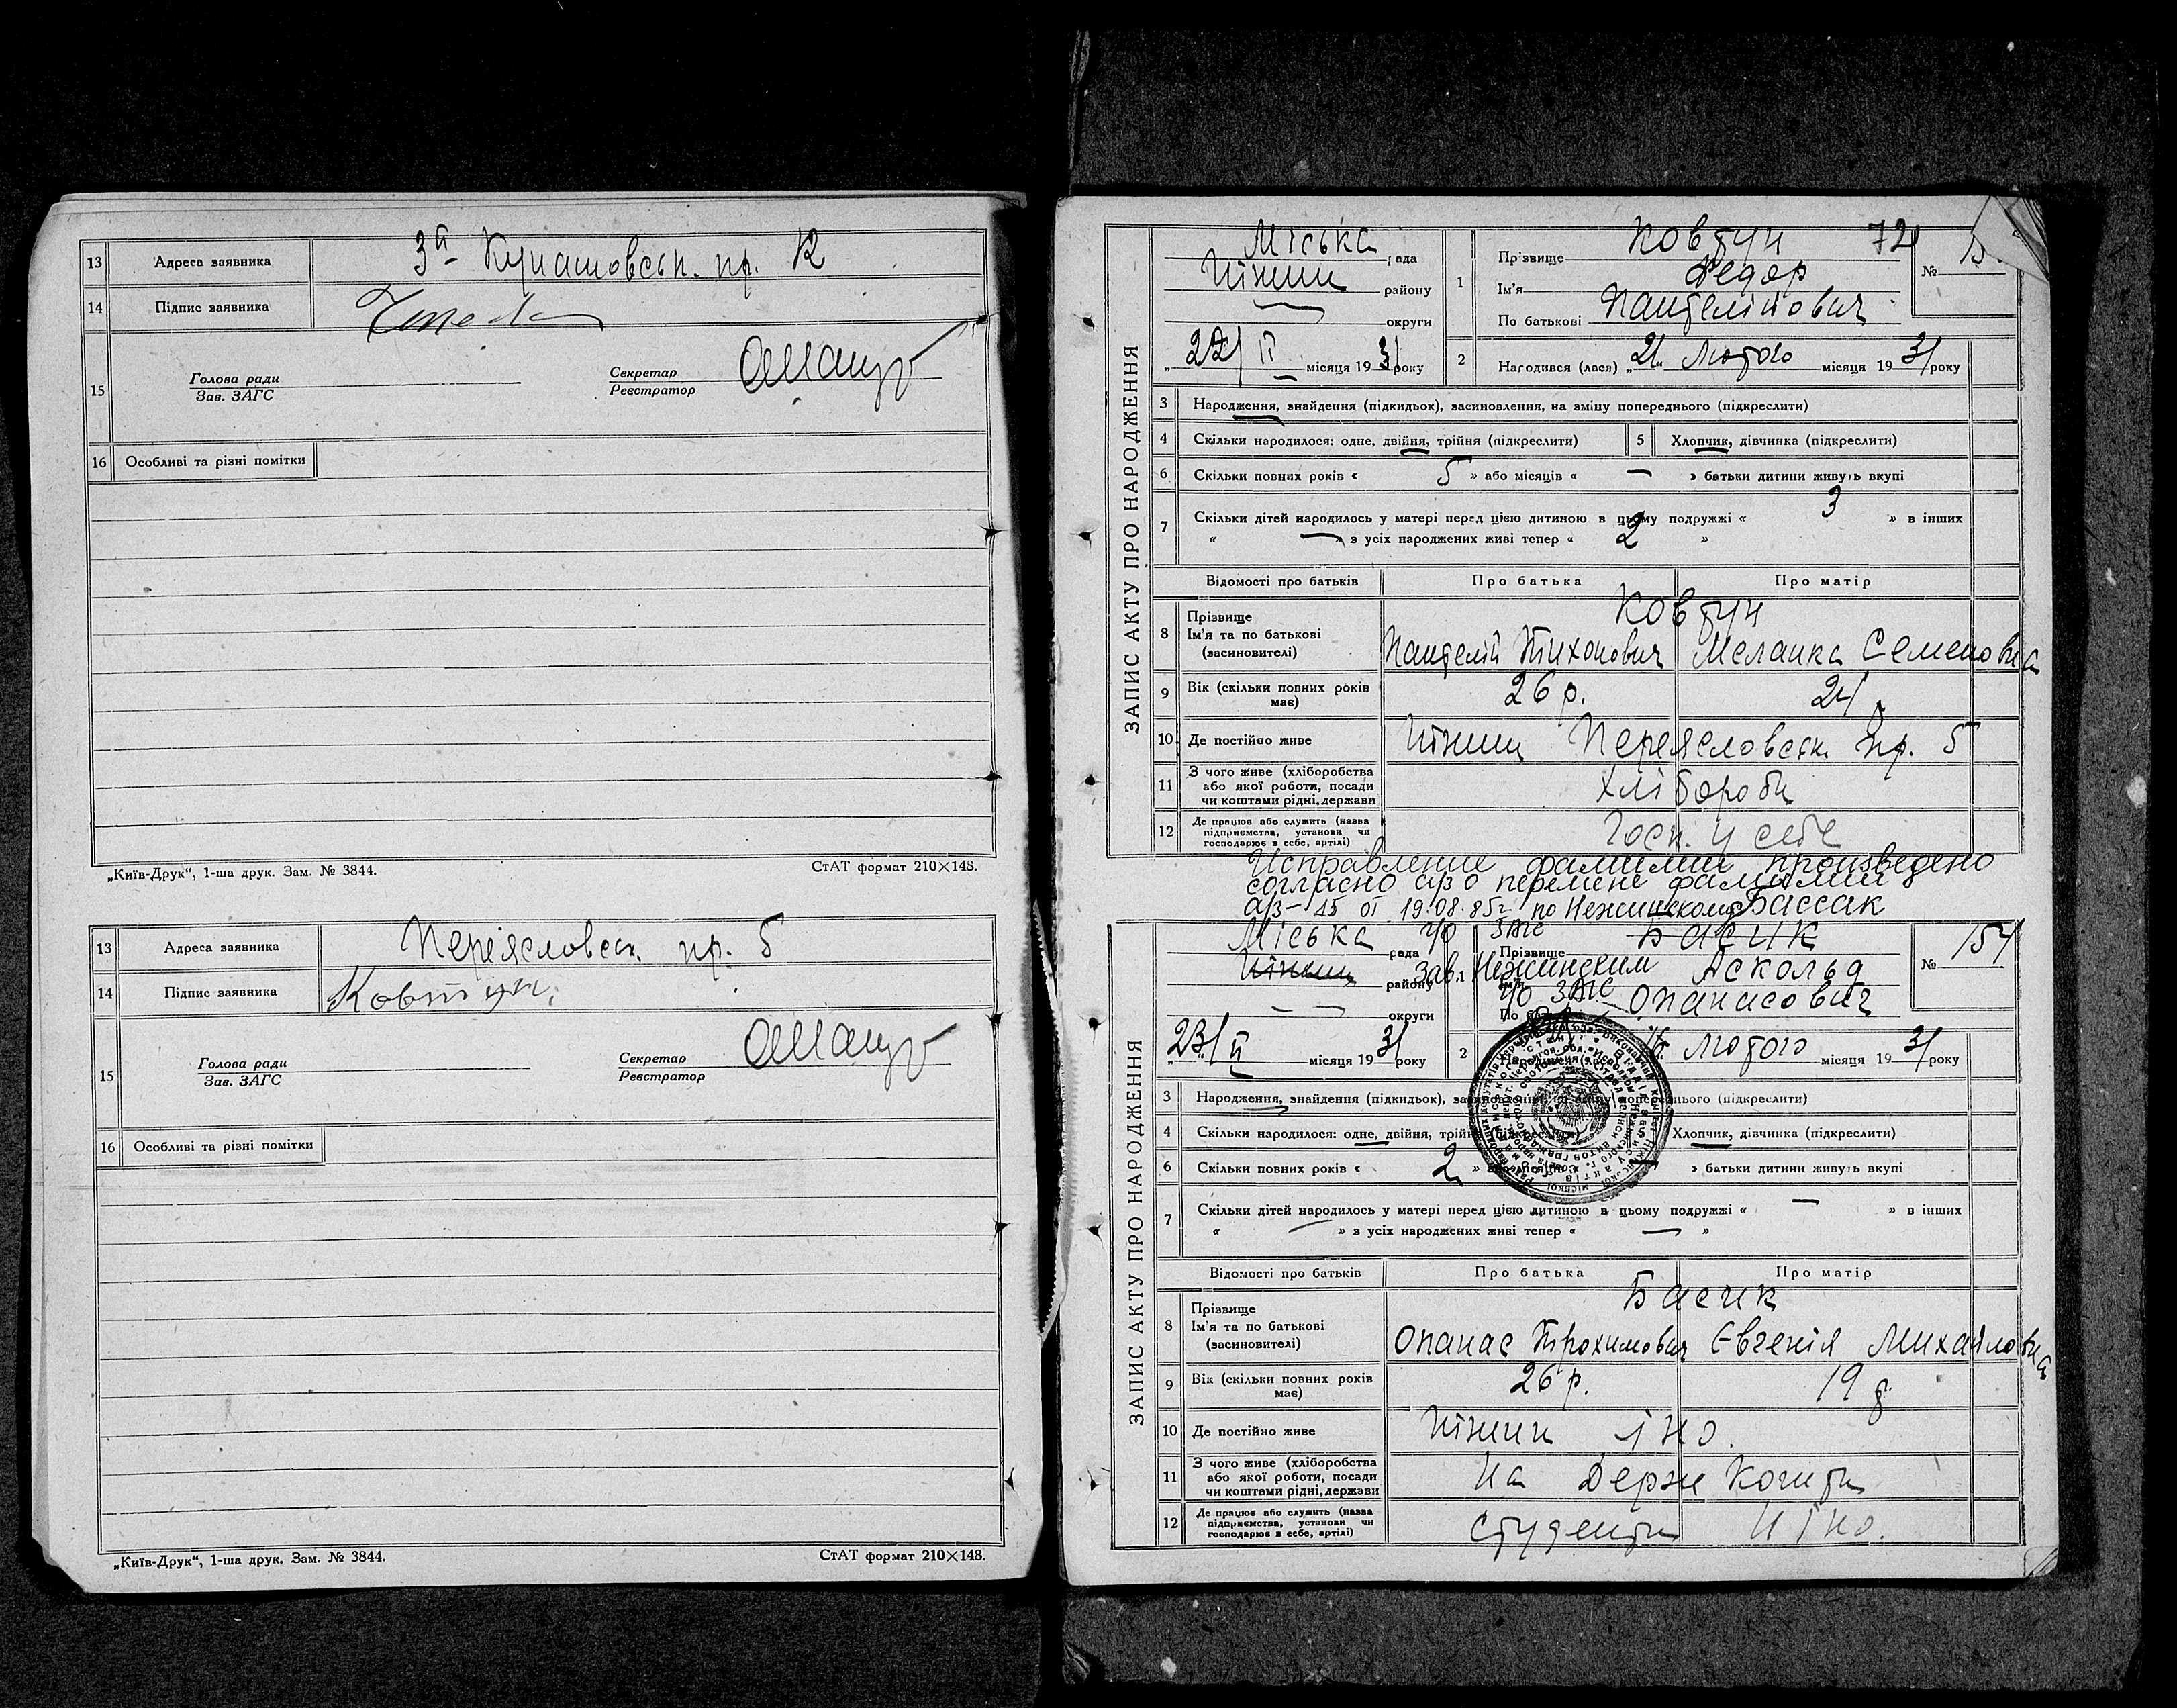 13 Адреса заявника 3я Кунашовськ. пр. 12
14 Підпис заявника
15 Голова ради
Зав. ЗАГС
Секретар
Реєстратор
16 Особливі та різні помітки
„Київ-Друк“, 1-ша друк. Зам. № 3844. СтАТ формат 210×148.
13 Адреса заявника Переясловськ. пр. 5
14 Підпис заявника Ковтун
15 Голова ради
Зав. ЗАГС
Секретар
Реєстратор
16 Особливі та різні помітки
„Київ-Друк“, 1-ша друк. Зам. № 3844. СтАТ формат 210×148.
72
ЗАПИС АКТУ ПРО НАРОДЖЕННЯ
Міська рада
Ніжин району
округи
„22/ II місяця 1931 року
1 Прізвище Ковтун №
Ім'я Федор
По батькові Пантелійович
2 Народився (лася) „21“ Лютого місяця 1931 року
3 Народження, знайдення (підкидьок), засиновлення, на зміну попереднього (підкреслити)
4 Скільки народилося: одне, двійня, трійня (підкреслити) 5 Хлопчик, дівчинка (підкреслити)
6 Скільки повних років « 5 » або місяців « — » батьки дитини живуть вкупі
7 Скільки дітей народилось у матері перед цією дитиною в цьому подружжі « 3 » в інших
« — » з усіх народжених живі тепер « 2 »
Відомості про батьків Про батька Про матір
8 Прізвище
Ім'я та по батькові
(засиновителі)
Ковтун
Пантелій Тихонович Меланка Семеновна
9 Вік (скільки повних років має) 26 р. 24
10 Де постійно живе Ніжин Переясловськ. пр. 5
11 З чого живе (хліборобства
або якої роботи, посади
чи коштами рідні, держави
Хлібороби
12 Де працює або служить (назва
підприємства, установи чи
господарює в себе, артілі)
Госп. у себе
Исправление фамилии произведено
согласно а/з о перемене фамилии
а/з – 45 от 19.08.85г. по Нежинскому Бассак
г/о ЗАГС
Зав. Нежинским
г/о ЗАГС
ЗАПИС АКТУ ПРО НАРОДЖЕННЯ
Міська рада
Ніжин району
округи
„23/ II місяця 1931 року
1 Прізвище Басик № 154
Ім'я Аскольд
По батькові Опанасович
2 Народився (лася) 16 Лютого місяця 1931 року
3 Народження, знайдення (підкидьок), (підкреслити)
4 Скільки народилося: одне, двійня, трійня Хлопчик, дівчинка (підкреслити)
6 Скільки повних років « 2 » батьки дитини живуть вкупі
7 Скільки дітей народилось у матері перед цією дитиною в цьому подружжі « — » в інших
« — » з усіх народжених живі тепер « — »
Відомості про батьків Про батька Про матір
8 Прізвище
Ім'я та по батькові
(засиновителі)
Басик
Опанас Трохимович Євгенія Михайловна
9 Вік (скільки повних років має) 26 р. 19
10 Де постійно живе Ніжин ІНО.
11 З чого живе (хліборобства
або якої роботи, посади
чи коштами рідні, держави
На Держ Кошти
12 Де працює або служить (назва
підприємства, установи чи
господарює в себе, артілі)
Студенти НІНО.